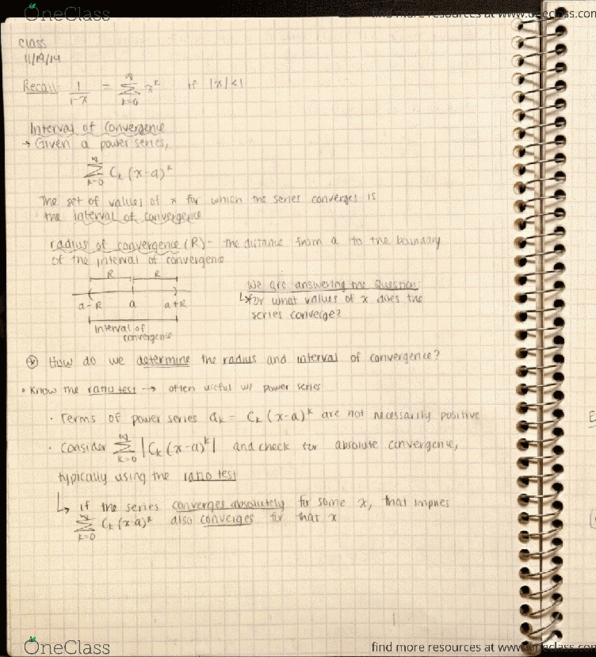 OneClass
find more resources at www.oneclass.com
class
11/19/14
Recall: 1/(1-x) = ∞∑k=0 x^k if |x|<1
Interval of convergence
→ Given a power series,
∞∑k=0 Ck(x-a)^k
The set of values of x for which the series converges is
the interval of convergence
radius of convergence (R) - the distance from a to the boundary
of the interval of convergence
R R
a-R a a+R
interval of
convergence
We are answering the question:
↳ For what values of x does the
series converge?
* How do we determine the radius and interval of convergence?
• Know the ratio test → often useful w/ power series
• Terms of power series ak = Ck(x-a)^k are not necessarily positive
• Consider ∞∑k=0 |Ck(x-a)^k| and check for absolute convergence,
typically using the ratio test
↳ if the series converges absolutely for some x, that implies
∞∑k=0 Ck(x-a)^k also converges for that x
OneClass
find more resources at www.oneclass.com